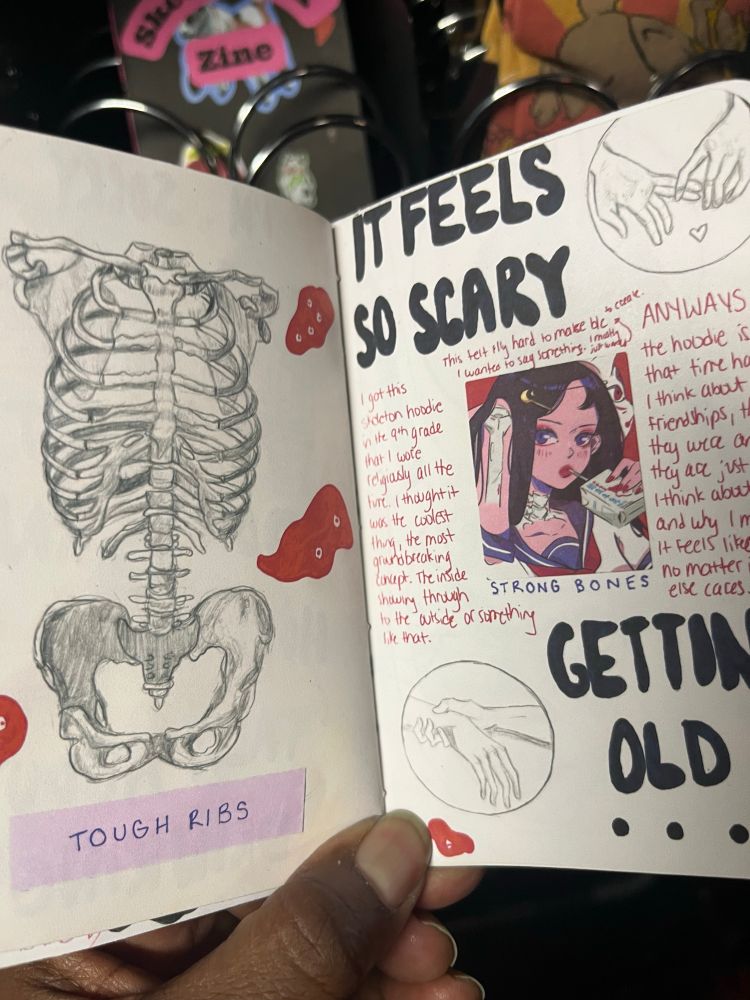 Zine
TOUGH RIBS
IT FEELS
SO SCARY
This felt rlly hard to make b/c
I wanted to say something.
I got this
skeleton hoodie
in the 9th grade
that I wore
religiously all the
time. I thought it
was the coolest
thing, the most
groundbreaking
concept. The inside
showing through
to the outside or something
like that.
STRONG BONES
ANYWAYS
the hoodie is
that time
I think about
friendships,
they were
they are just
I think about
and why I
It feels like
no matter
else cares.
GETTIN
OLD
...